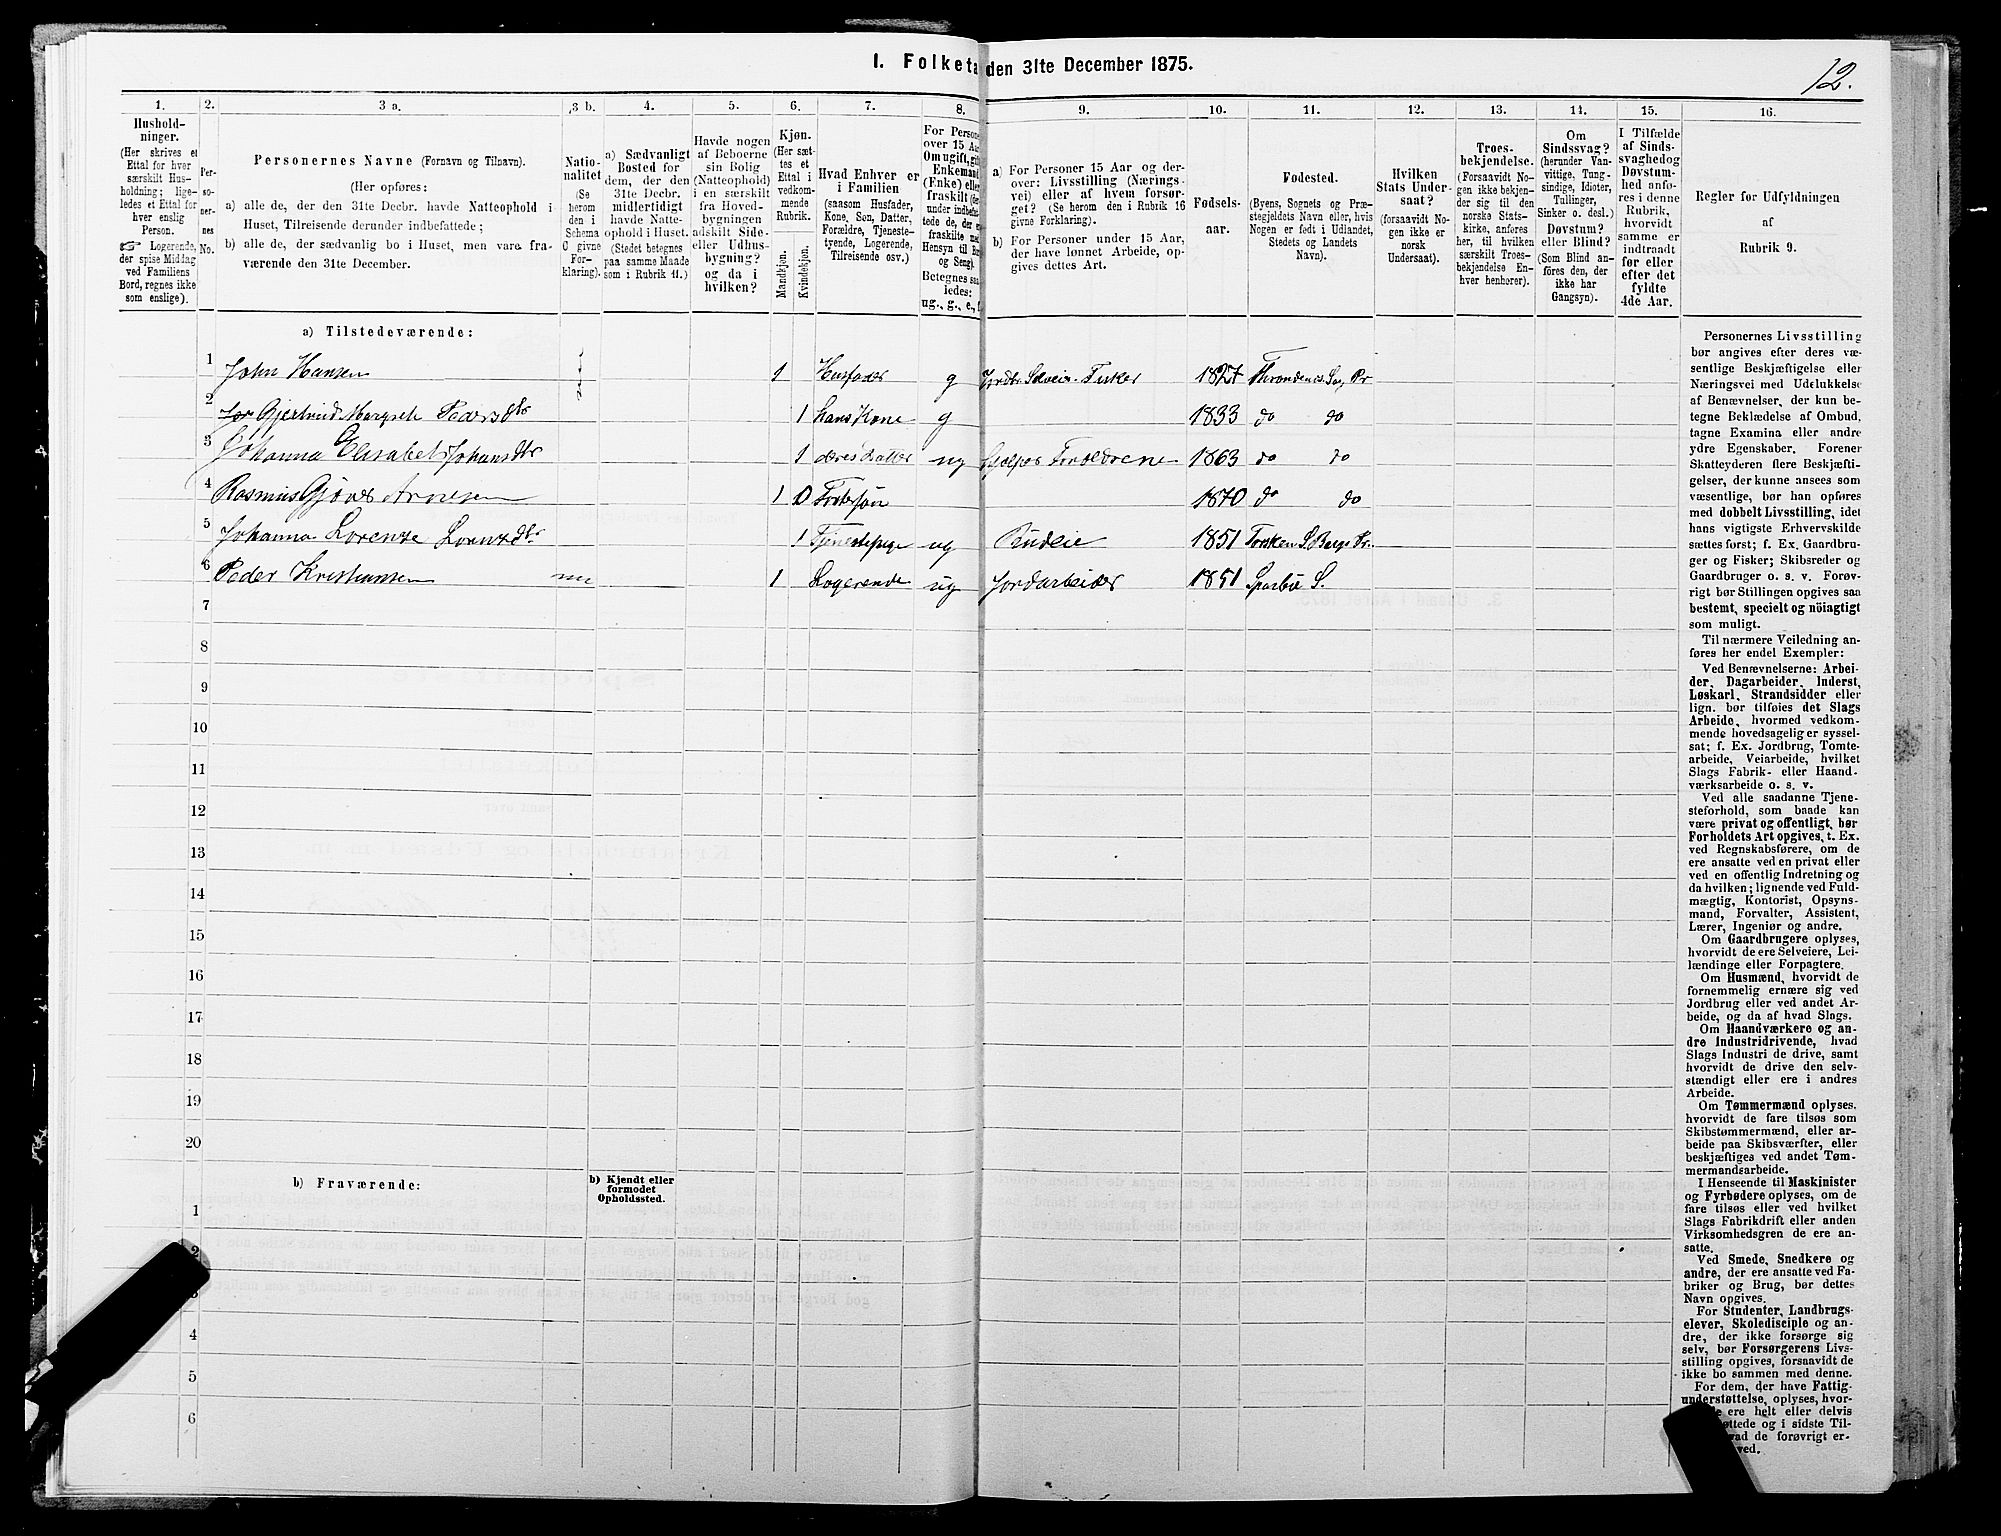 I. Folketa den 31te December 1875.
12.
1. 2. 3 a. 3 b. 4. 5. 6. 7. 8. 9. 10. 11. 12. 13. 14. 15. 16.
Hushold-
ninger.
(Her skrives et
Ettal for hver
særskilt Hus-
holdning; lige-
ledes et Ettal for
hver enslig
Person.
☞ Logerende,
der spise Middag
ved Familiens
Bord, regnes ikke
som enslige).
Per-
so-
ner-
nes
No.
Personernes Navne (Fornavn og Tilnavn).
(Her opføres:
a) alle de, der den 31te Decbr. havde Natteophold i
Huset, Tilreisende derunder indbefattede;
b) alle de, der sædvanlig bo i Huset, men vare fra-
værende den 31te December.
Natio-
nalitet
(Se
herom
den i
Schema
C givne
For-
klaring).
a) Sædvanligt
Bosted for
dem, der den
31te Decbr.
midlertidigt
havde Natte-
ophold i Huset.
(Stedet betegnes
paa samme Maade
som i Rubrik 11.)
Havde nogen
af Beboerne
sin Bolig
(Natteophold)
i en særskilt
fra Hoved-
bygningen
adskilt Side-
eller Udhus-
bygning?
og da i
hvilken?
Kjøn.
(Her sæt-
tes et
Ettal i
vedkom-
mende
Rubrik.
Mandkjøn.
Kvindekjøn.
Hvad Enhver er
i Familien
(saasom Husfader,
Kone, Søn, Datter,
Forældre, Tjeneste-
tyende, Logerende,
Tilreisende osv.)
For Persone
over 15 Aar
Om ugift, gift
Enkemand
(Enke) eller
fraskilt (der
under indbefat-
tede de, der er
fraskilte med
Hensyn til Bor
og Seng).
Betegnes saa
ledes:
ug., g., e.,
a) For Personer 15 Aar og der-
over: Livsstilling (Nærings-
vei) eller af hvem forsør-
get? (Se herom den i Rubrik 16
givne Forklaring).
b) For Personer under 15 Aar,
der have lønnet Arbeide, op-
gives dettes Art.
Fødsels-
aar.
Fødested.
(Byens, Sognets og Præ-
stegjeldets Navn eller, hvis
Nogen er født i Udlandet,
Stedets og Landets
Navn).
Hvilken
Stats Under-
saat?
(forsaavidt No-
gen ikke er
norsk
Undersaat).
Troes-
bekjendelse.
(Forsaavidt No-
gen ikke bekjen-
der sig til den
norske Stats-
kirke, anføres
her, til hvilken
særskilt Troes-
bekjendelse En-
hver henhører).
Om
Sindssvag?
(herunder Van-
vittige, Tung-
sindige, Idioter,
Tullinger,
Sinker o. desl.)
Døvstum?
eller Blind?
(Som Blind an-
føres den, der
ikke har
Gangsyn).
I Tilfælde
af Sinds-
svaghed og
Døvstum-
hed anfø-
res i denne
Rubrik,
hvorvidt
samme er
indtraadt
før eller
efter det
fyldte
4de Aar.
Regler for Udfyldningen
af
Rubrik 9.
a) Tilstedeværende:
1 John Hansen 1 Husfader g Jordbr. Selveir. Fisker 1827 Throndenes Sog, Pr
2 Gjertrud Margrete Pedersdtr 1 hans Kone g 1833 do do
3 Johanna Elisabet Johansdtr 1 deres datter ug hjelper Forældrene 1863 do do
4 Rasmus Arnesen 1 0 Fostersøn 1870 do do
5 Johanna Lorenze Lorenzdtr 1 Tjenestepige ug Budeie 1851 Torsken S. Bergs Pr.
6 Peder Kristiansen 1 Logerende ug Jordarbeider 1851 Sparbu S.
7
8
9
10
11
12
13
14
15
16
17
18
19
20
b) Fraværende:
b) Kjendt eller
formodet
Opholdssted.
1
2
3
4
5
6
Personernes Livsstilling
bør angives efter deres væ-
sentlige Beskjæftigelse eller
Næringsvei med Udelukkelse
af Benævnelser, der kun be-
tegne Beklædelse af Ombud,
tagne Examina eller andre
ydre Egenskaber. Forener
Skatteyderen flere Beskjæfti-
gelser, der kunne ansees som
væsentlige, bør han opføres
med dobbelt Livsstilling, idet
hans vigtigste Erhvervskilde
sættes først; f. Ex. Gaardbru-
ger og Fisker; Skibsreder og
Gaardbruger o. s. v. Forøv-
rigt bør Stillingen opgives saa
bestemt, specielt og nöiagtigt
som muligt.
Til nærmere Veiledning an-
føres her endel Exempler:
Ved Benævnelserne: Arbei-
der, Dagarbeider, Inderst,
Løskarl, Strandsidder eller
lign. bør tilføies det Slags
Arbeide, hvormed vedkom-
mende hovedsagelig er syssel-
sat; f. Ex. Jordbrug, Tomte-
arbeide, Veiarbeide, hvilket
Slags Fabrik- eller Haand-
værksarbeide o. s. v.
Ved alle saadanne Tjene-
steforhold, som baade kan
være privat og offentligt, bør
Forholdets Art opgives, t. Ex.
ved Regnskabsførere, om de
ere ansatte ved en privat eller
ved en offentlig Indretning og
da hvilken; lignende ved Fuld-
mægtig, Kontorist, Opsyns-
mand, Forvalter, Assistent,
Lærer, Ingeniør og andre.
Om Gaardbrugere oplyses,
hvorvidt de ere Selveiere, Lei-
lændinge eller Forpagtere.
Om Husmænd, hvorvidt de
fornemmelig ernære sig ved
Jordbrug eller ved andet Ar-
beide, og da af hvad Slags.
Om Haandværkere og an-
dre Industridrivende, hvad
Slags Industri de drive, samt
hvorvidt de drive den selv-
stændigt eller ere i andres
Arbeide.
Om Tømmermænd oplyses,
hvorvidt de fare tilsøs som
Skibstømmermænd, eller ar-
beide paa Skibsværfter, eller
beskjæftiges ved andet Tøm-
mermandsarbeide.
I Henseende til Maskinister
og Fyrbødere oplyses, om de
fare tilsøs eller ved hvilket
Slags Fabrikdrift eller anden
Virksomhedsgren de ere an-
satte.
Ved Smede, Snedkere og
andre, der ere ansatte ved Fa-
briker og Brug, bør dettes
Navn opgives.
For Studenter, Landbrugs-
elever, Skoledisciple og an-
dre, der ikke forsørge sig
selv, bør Forsørgerens Livs-
stilling opgives, forsaavidt de
ikke bo sammen med denne.
For dem, der have Fattig-
understøttelse, oplyses, hvor-
ere helt eller delvis
øttede og i sidste Til-
ad de forøvrigt er-
ved.